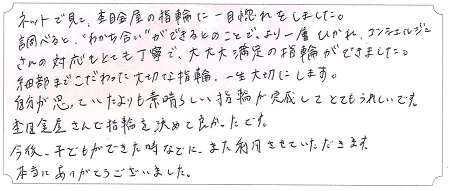 ネットで見て、杢目金屋の指輪に一目惚れをしました。
調べると、"わかち合い"ができるとのことで、より一層ひかれ、コンシェルジュ
さんの対応もとても丁寧で、大大大満足の指輪ができました。
細部までこだわった大切な指輪、一生大切にします。
自分が思っていたよりも素晴らしい指輪が完成してとてもうれしいです。
杢目金屋さんで指輪を決めて良かったです。
今後、子どもができた時などに、また利用させていただきます。
本当にありがとうございました。